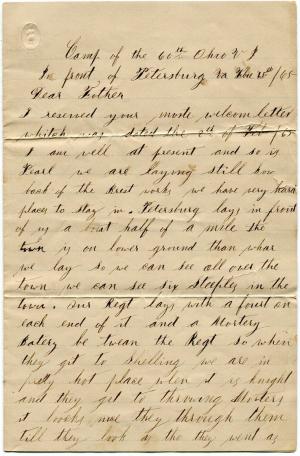 Camp of the 60th Ohio V I
In front of Petersburg Va Feb 28th /65
Dear Father
I reserved your moste welcom letter
whitch was dated the 2th of Feb /65
I am well at present and so is
Pearl we are laying still how
back of the brest works we have very hard
places to stay in. Petersburg lays in front
of us a bout half of a mile the
town is on lower ground than whar
we lay so we can see all over the
town we can see six steeples in the
town. our Regt lays with a fourt on
each end of it and a Mortery
Batery be twean the Regt so when
they get to shelling we are in
pretty hot place when it is knight
and they get to throwing Morters
it looks nice they through them
till they look as tho they went as